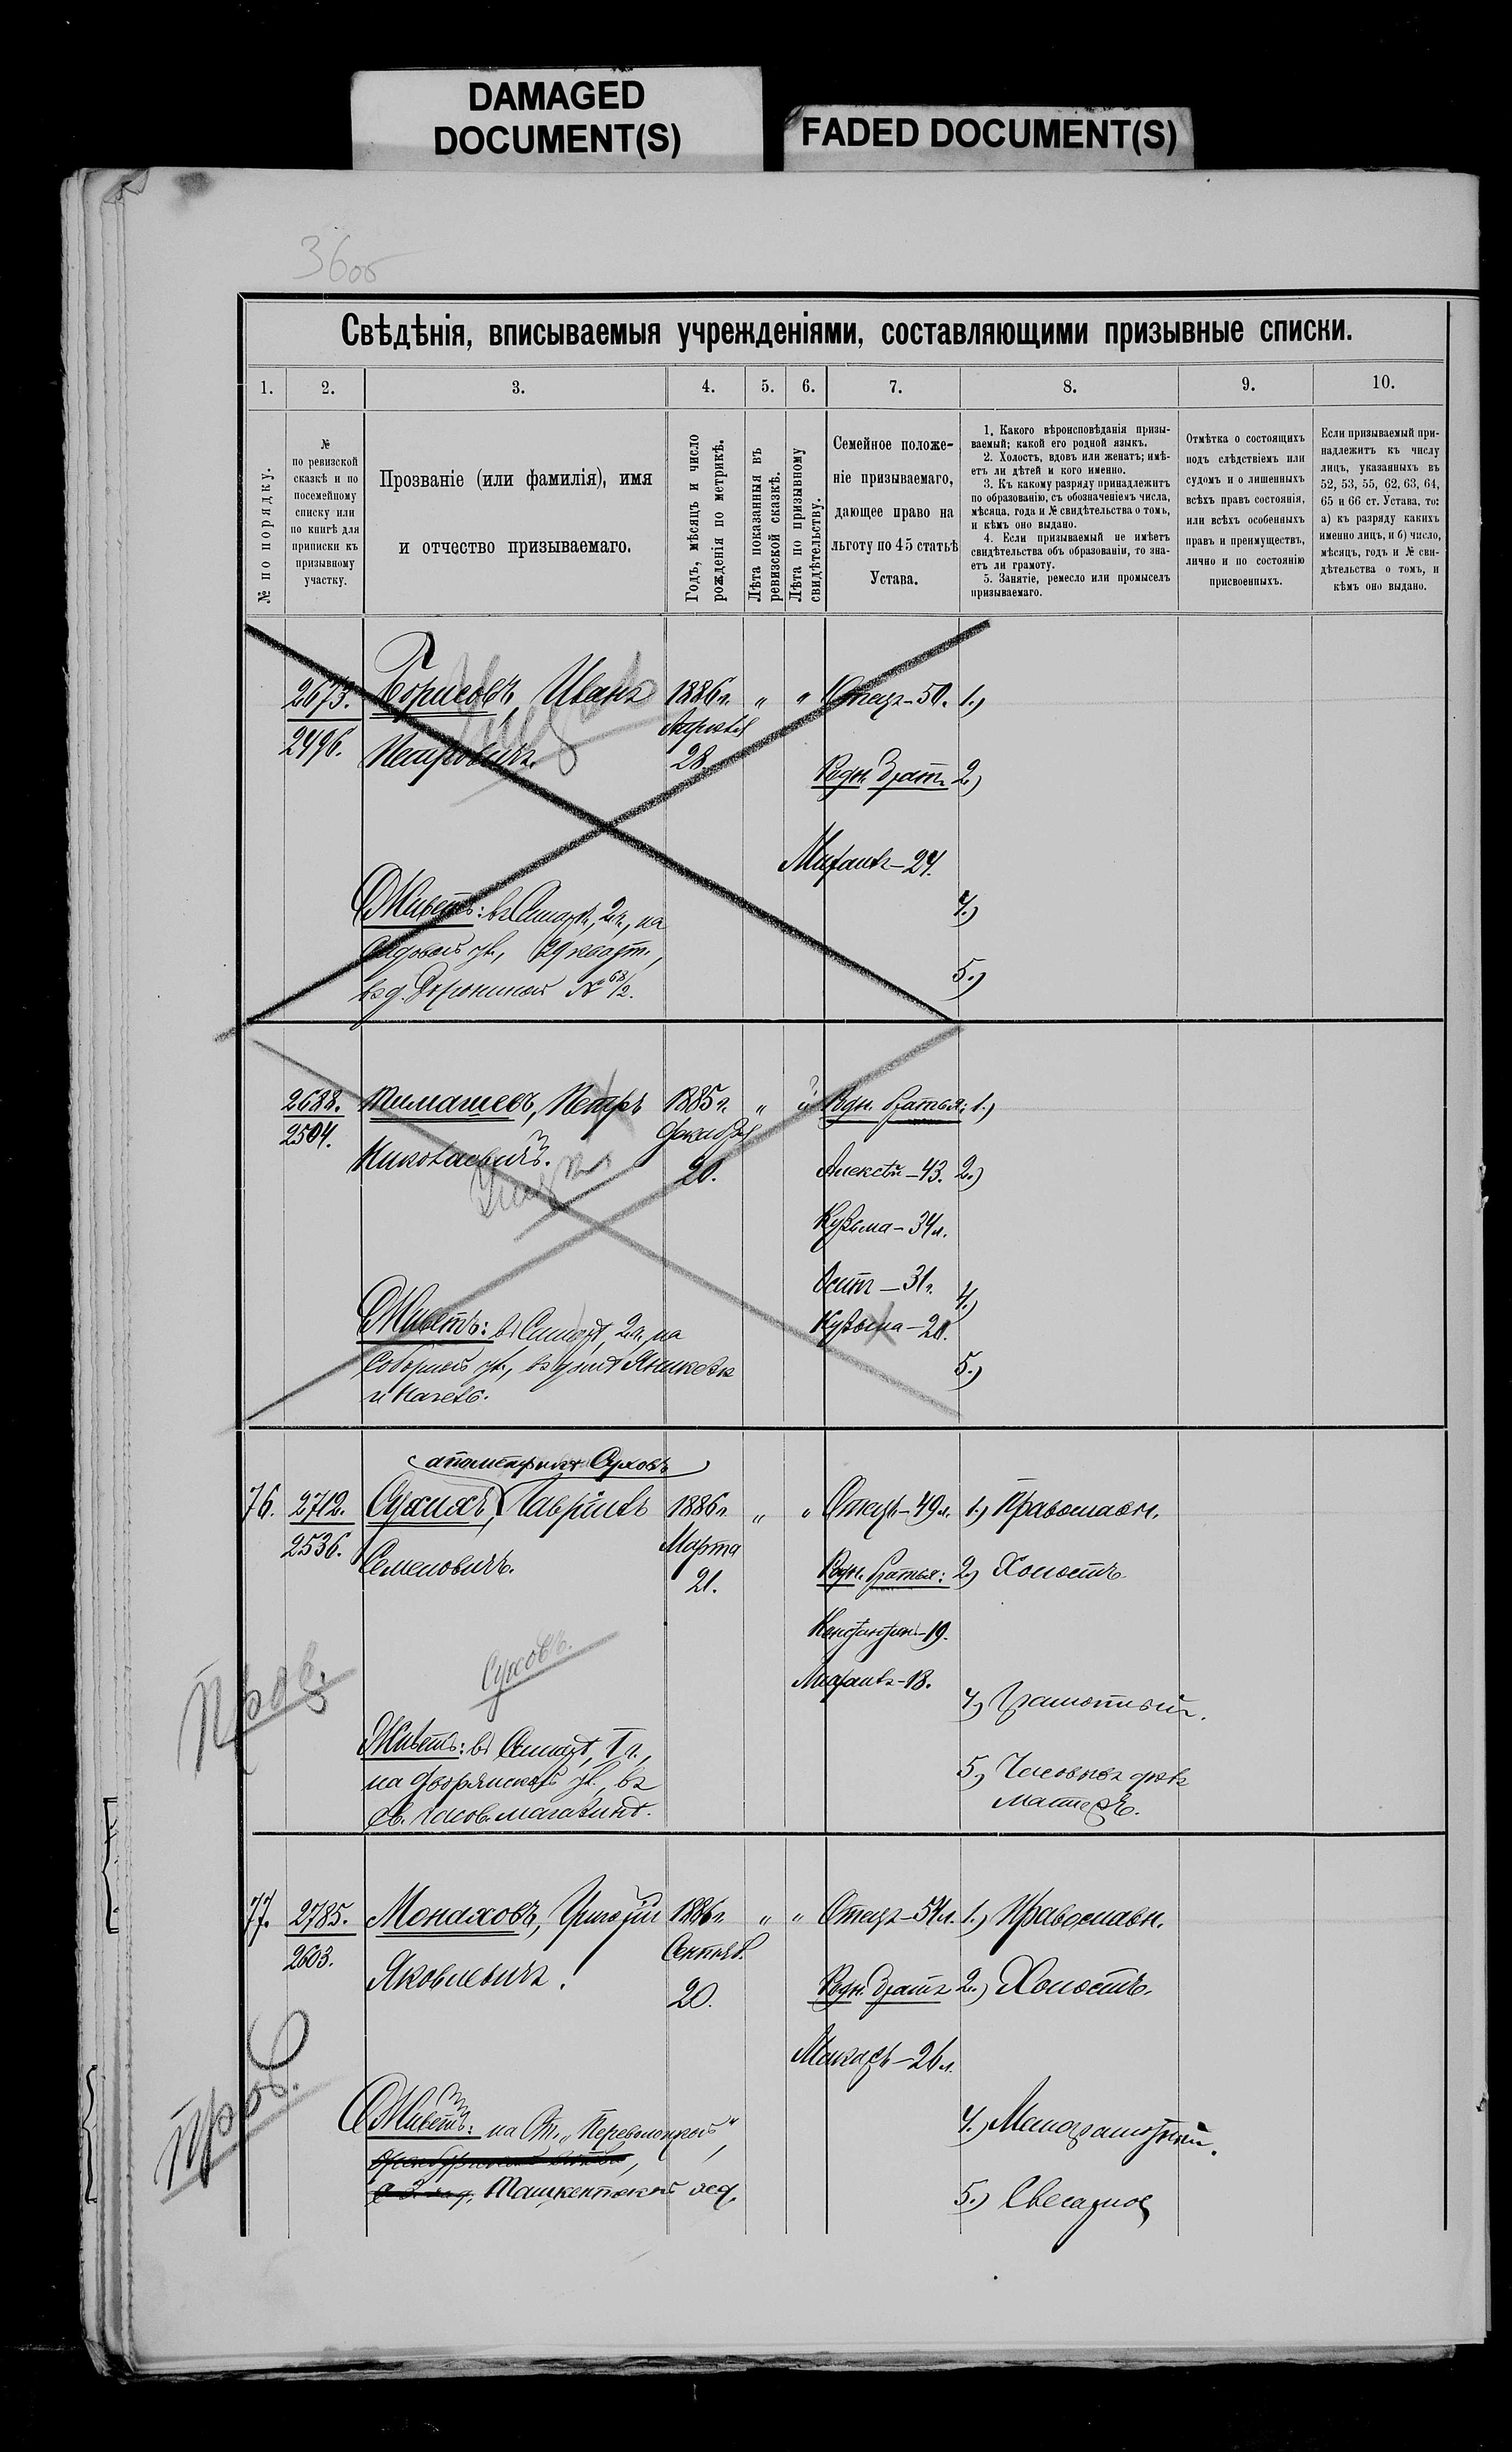 DAMAGED
DOCUMENT(S)
FADED DOCUMENT(S)
36об
Свѣдѣнія, вписываемыя учрежденіями, составляющими призывные списки.
1. 2. 3. 4. 5. 6. 7. 8. 9. 10.
№ по порядку.
№
по ревизской
сказкѣ и по
посемейному
списку или
по книгѣ для
приписки къ
призывному
участку.
Прозваніе (или фамилія), имя
и отчество призываемаго.
Годъ, мѣсяцъ и число
рожденія по метрикѣ.
Лѣта показанныя въ
ревизской сказкѣ.
Лѣта по призывному
свидѣтельству.
Семейное положе-
ніе призываемаго,
дающее право на
льготу по 45 статьѣ
Устава.
1. Какого вѣроисповѣданія призы-
ваемый; какой его родной языкъ.
2. Холостъ, вдовъ или женатъ; имѣ-
етъ ли дѣтей и кого именно.
3. Къ какому разряду принадлежитъ
по образованію, съ обозначеніемъ числа,
мѣсяца, года и № свидѣтельства о томъ,
и кѣмъ оно выдано.
4. Если призываемый не имѣетъ
свидѣтельства объ образованіи, то зна-
етъ ли грамоту.
5. Занятіе, ремесло или промыселъ
призываемаго.
Отмѣтка о состоящихъ
подъ слѣдствіемъ или
судомъ и о лишенныхъ
всѣхъ правъ состоянія,
или всѣхъ особенныхъ
правъ и преимуществъ,
лично и по состоянію
присвоенныхъ.
Если призываемый при-
надлежитъ къ числу
лицъ, указанныхъ въ
52, 53, 55, 62, 63, 64,
65 и 66 ст. Устава, то:
а) къ разряду какихъ
именно лицъ, и б) число,
мѣсяцъ, годъ и № сви-
дѣтельства о томъ, и
кѣмъ оно выдано.
2673. Борисовъ, Иванъ 1886 г. " " Отецъ – 50. 1.)
2496. Петровичъ. Апрѣля
28. Родн. братъ 2)
Михаилъ – 24.
Живетъ: въ Самарѣ, 2 ч., на 4.)
Садовой ул., 29 кварт.,
въ д. № 68/2. 5.)
2688. Тимашевъ, Петръ 1885 г. " " Родн. братья: 1.)
2504. Николаевичъ. Декабря
20. Алексѣй – 43. 2.)
Кузьма – 34 л.
Осипъ – 31 г. 4.)
Кузьма – 20.
Живетъ: въ Самарѣ, 2 ч., на
Соборной ул., въ 5.)
76. 2712. Сухихъ, Гавріилъ 1886 г. " " Отецъ – 49 л. 1.) Православн.
а по метрикѣ Суховъ
2536. Семеновичъ. Марта
21. Родн. братья: 2.) Холостъ
Константин. – 19.
Суховъ.
Михаилъ – 18.
Пров. 4.) Грамотный.
Живетъ: въ Самарѣ, I ч.,
на Дворянской ул., въ 5.) Часовыхъ дѣлъ
св. часов. магазинѣ. мастеръ.
77. 2785. Монаховъ, Григорій 1886 г. " " Отецъ – 54 л. 1.) Православн.
2603. Яковлевичъ. Сентяб.
20. Родн. братъ 2.) Холостъ.
Макаръ – 26 л.
Пров.
Живетъ: на Ст. „Переволоцкой" 4.) Малограмотный.
Ташкентской жел. 5.)